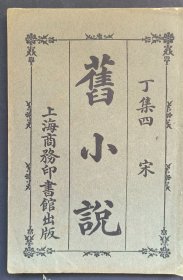 丁集四 宋
舊小說
上海商務印書館出版